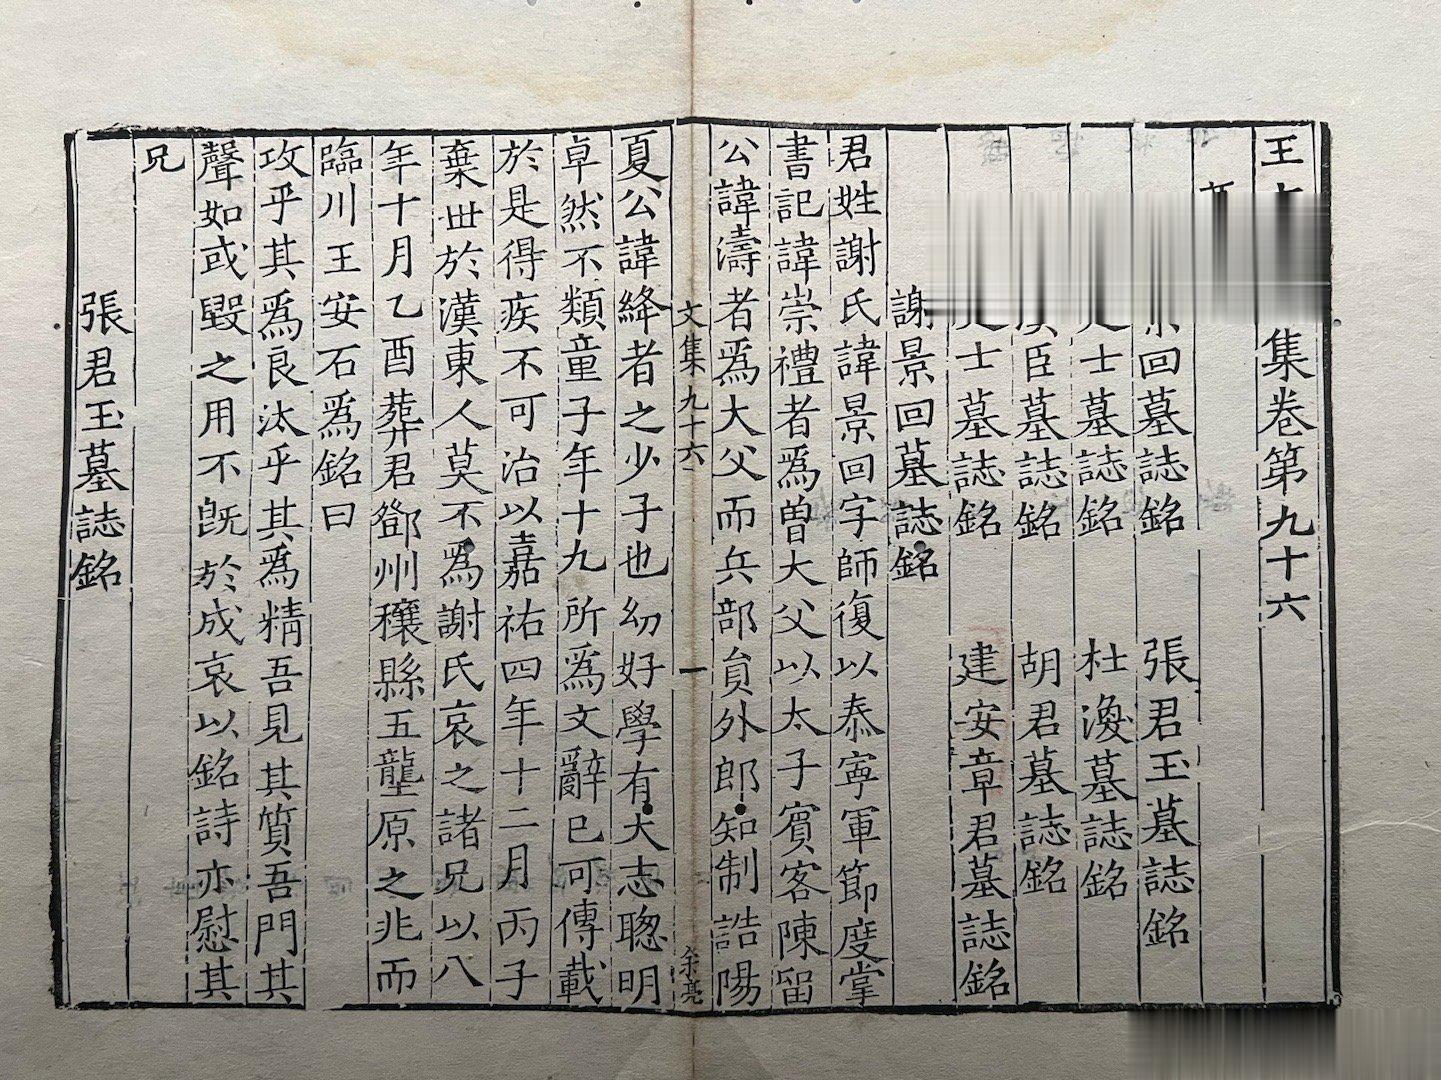 王 集卷第九十六
回墓誌銘 張君玉墓誌銘
士墓誌銘 杜渙墓誌銘
臣墓誌銘 胡君墓誌銘
士墓誌銘 建安章君墓誌銘
謝景回墓誌銘
君姓謝氏諱景回字師復以泰寧軍節度掌
書記諱崇禮者爲曾大父以太子賓客陳留
公諱濤者爲大父而兵部員外郎知制誥陽
文集九十六 一 余亮
夏公諱絳者之少子也幼好學有大志聰明
卓然不類童子年十九所爲文辭已可傳載
於是得疾不可治以嘉祐四年十二月丙子
棄丗於漢東人莫不爲謝氏哀之諸兄以八
年十月乙酉葬君鄧州穰縣五壟原之兆而
臨川王安石爲銘曰
攻乎其爲良汰乎其爲精吾見其質吾門其
聲如或毀之用不旣於成哀以銘詩亦慰其
兄
張君玉墓誌銘